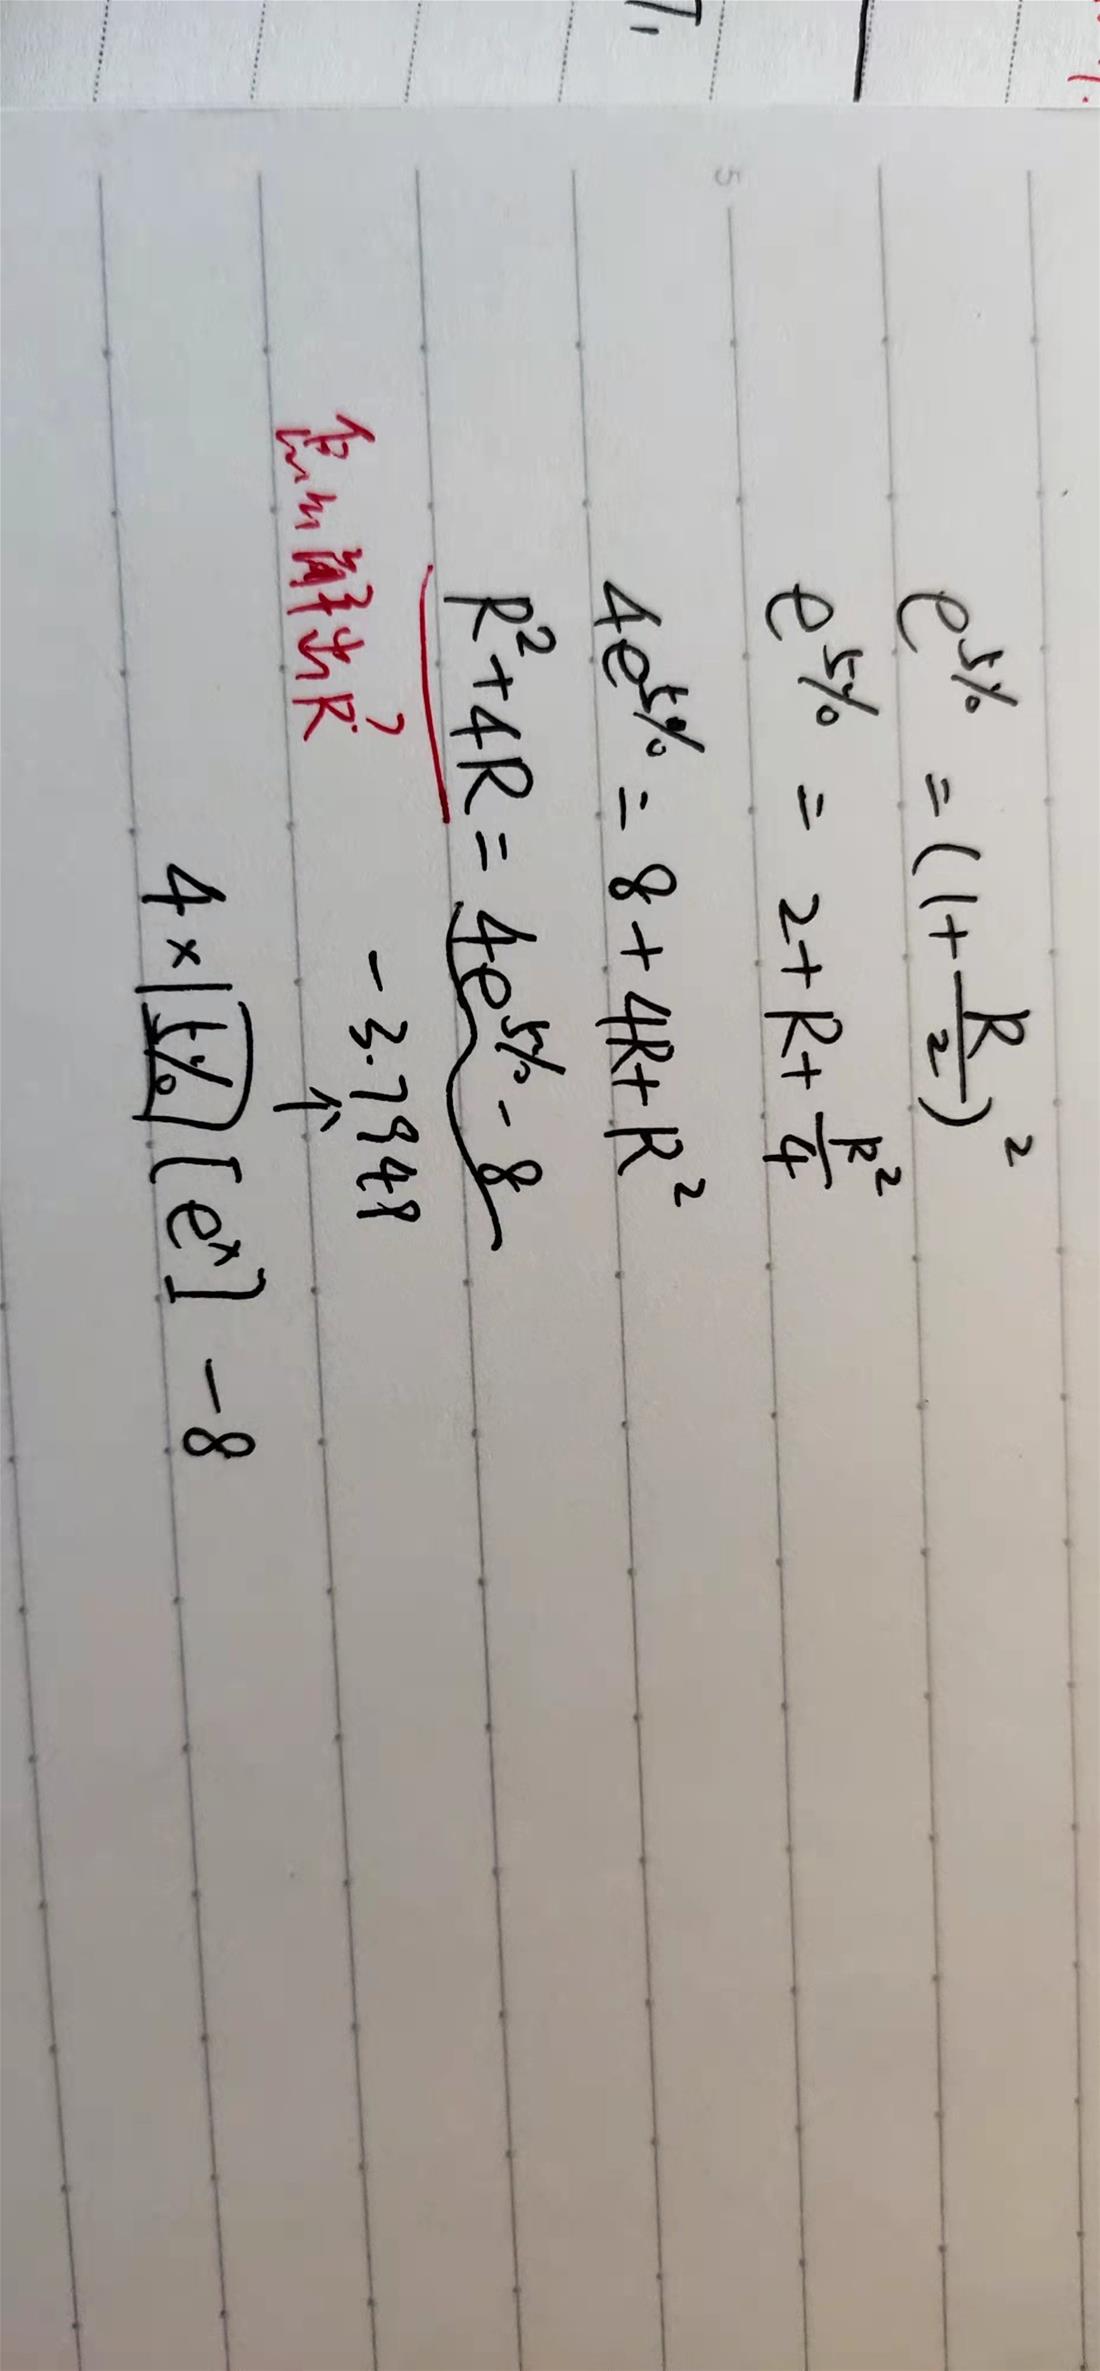 e^5% = (1+R/2)^2
e^5% = 2+R+R^2/4
4e^5% = 8+4R+R^2
R^2+4R=4e^5%-8
-3.7948
如何解出R?
4×5%[e^x] -8
5